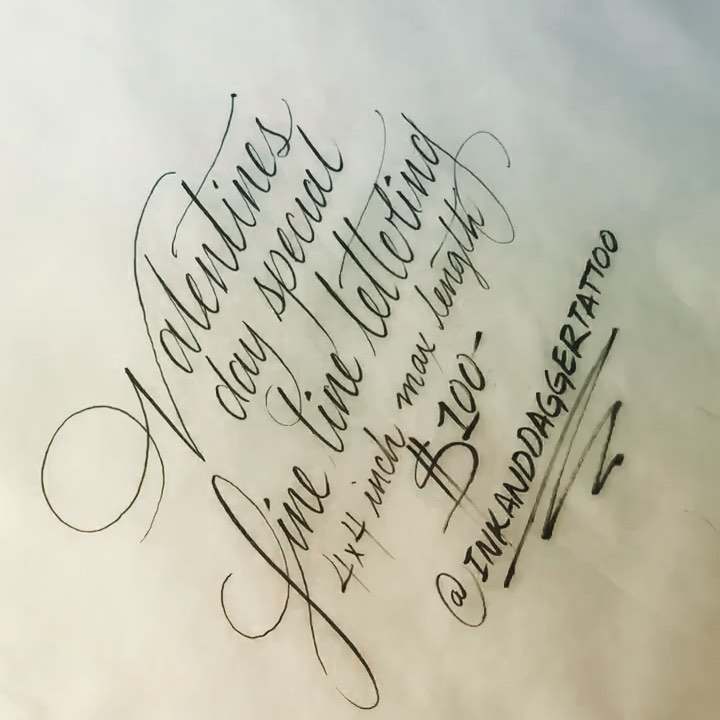 Valentines
day special
fine line lettering
4x4 inch max length
$100-
@INKANDDAGGERTATTOO